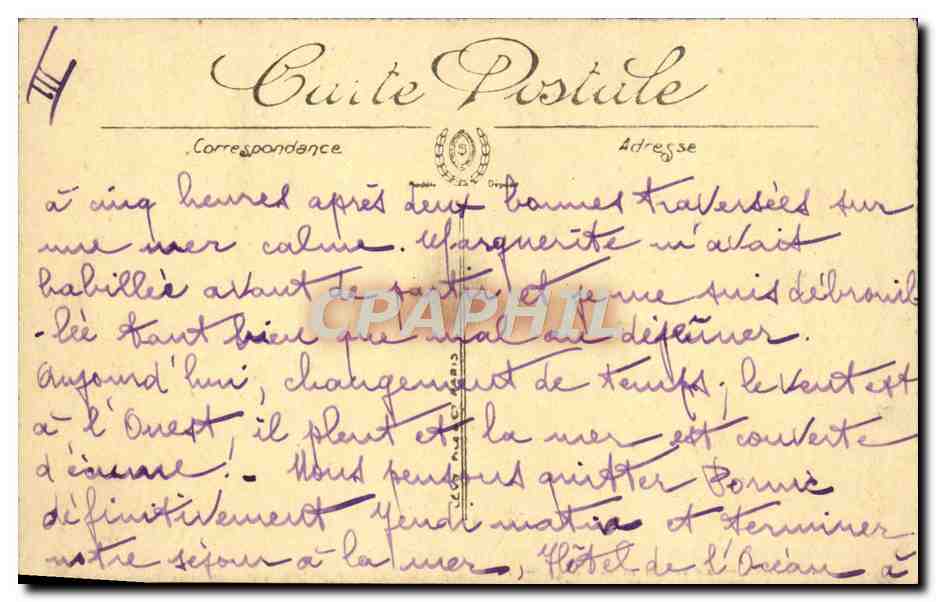 III
Carte Postale
Correspondance
Adresse
Modèle Déposé
à cinq heures après deux bonnes traversées sur
une mer calme. Marguerite m'avait
habillée avant de partir et je me suis débrouil-
-lée tant bien que mal au déjeûner.
CPAPHIL
Aujourd'hui, changement de temps; le vent est
à l'Ouest, il pleut et la mer est couverte
d'écume! - Nous pensons quitter Pornic
définitivement Jeudi matin et terminer
notre séjour à la mer, Hôtel de l'Océan à